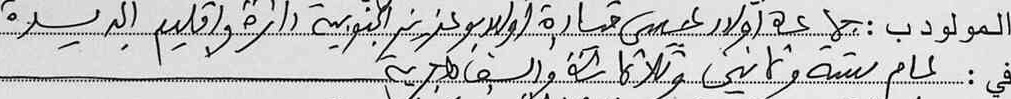 المولود ب : جماعة أولاد عيسى قيادة أولاد بوعزيز الجنوبية دائرة واقليم الجديدة
في : عام ستة وثمانين وثلاثمائة وألف هجرية